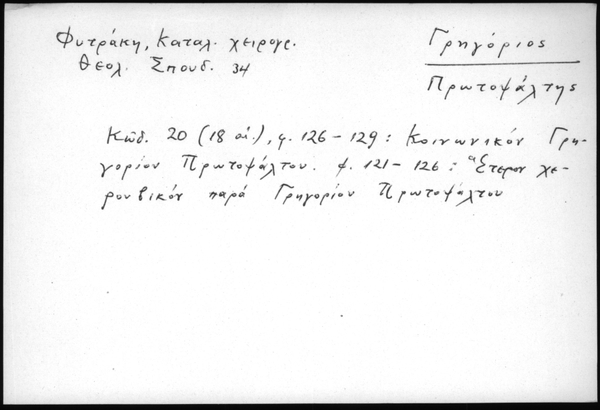 Φυτράκη, Καταλ. χειρογρ.
Θεολ. Σπουδ. 34
Γρηγόριος
Πρωτοψάλτης
Κῶδ. 20 (18 αἰ.), φ. 126-129: Κοινωνικόν Γρη-
γορίου Πρωτοψάλτου. φ. 121-126: Ἕτερον χε-
ρουβικόν παρά Γρηγορίου Πρωτοψάλτου